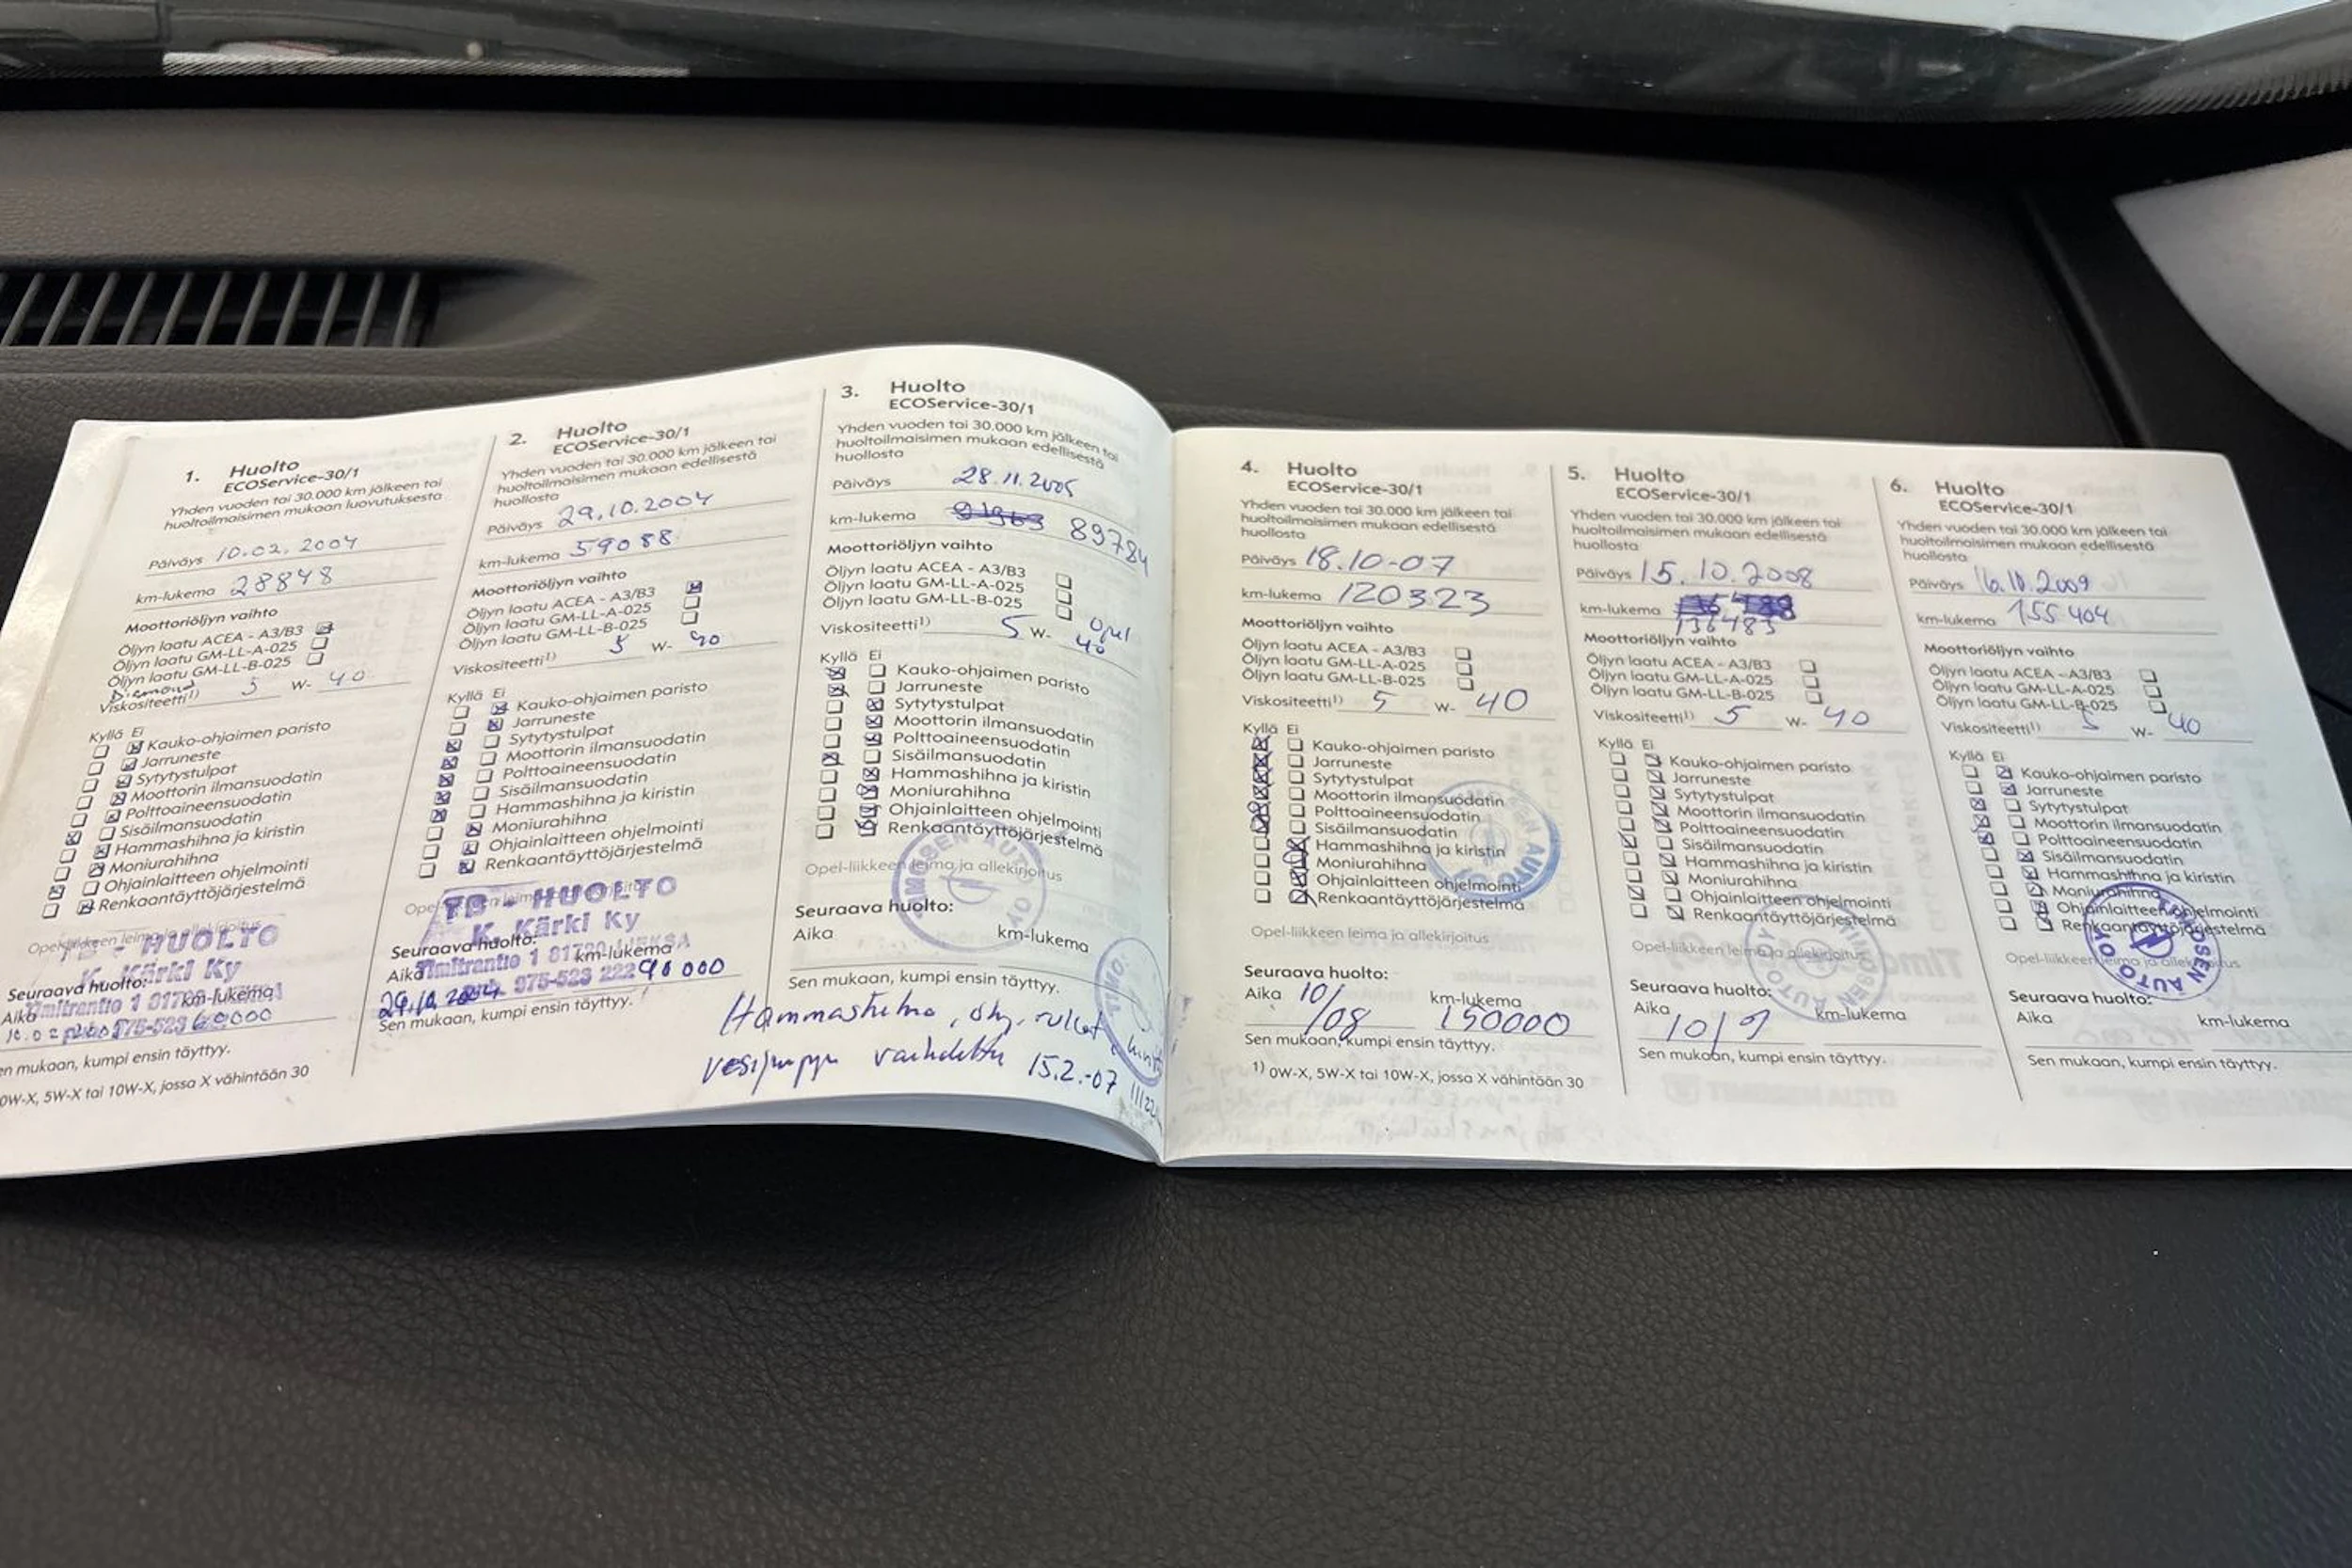 1. Huolto
ECOService-30/1
Yhden vuoden tai 30.000 km jälkeen tai
huoltoilmaisimen mukaan luovutuksesta
Päiväys 10.02.2004
km-lukema 28848
Moottoriöljyn vaihto
Öljyn laatu ACEA - A3/B3
Öljyn laatu GM-LL-A-025
Öljyn laatu GM-LL-B-025
Diamond
Viskositeetti1) 5 W- 40
Kyllä Ei
Kauko-ohjaimen paristo
Jarruneste
Sytytystulpat
Moottorin ilmansuodatin
Polttoaineensuodatin
Sisäilmansuodatin
Hammashihna ja kiristin
Moniurahihna
Ohjainlaitteen ohjelmointi
Renkaantäyttöjärjestelmä
Opel-liikkeen leima ja allekirjoitus
TB - HUOLTO
K. Kärki Ky
Seuraava huolto:
Aika km-lukema
60000
Sen mukaan, kumpi ensin täyttyy.
0W-X, 5W-X tai 10W-X, jossa X vähintään 30
2. Huolto
ECOService-30/1
Yhden vuoden tai 30.000 km jälkeen tai
huoltoilmaisimen mukaan edellisestä
huollosta
Päiväys 29.10.2004
km-lukema 59088
Moottoriöljyn vaihto
Öljyn laatu ACEA - A3/B3
Öljyn laatu GM-LL-A-025
Öljyn laatu GM-LL-B-025
Viskositeetti1) 5 W- 40
Kyllä Ei
Kauko-ohjaimen paristo
Jarruneste
Sytytystulpat
Moottorin ilmansuodatin
Polttoaineensuodatin
Sisäilmansuodatin
Hammashihna ja kiristin
Moniurahihna
Ohjainlaitteen ohjelmointi
Renkaantäyttöjärjestelmä
TB - HUOLTO
K. Kärki Ky
Timitrantie 1 81720 LIEKSA
Seuraava huolto:
Aika km-lukema
90000
Sen mukaan, kumpi ensin täyttyy.
3. Huolto
ECOService-30/1
Yhden vuoden tai 30.000 km jälkeen tai
huoltoilmaisimen mukaan edellisestä
huollosta
Päiväys 28.11.2005
km-lukema 89784
Moottoriöljyn vaihto
Öljyn laatu ACEA - A3/B3
Öljyn laatu GM-LL-A-025
Öljyn laatu GM-LL-B-025
Opel
Viskositeetti1) 5 W- 40
Kyllä Ei
Kauko-ohjaimen paristo
Jarruneste
Sytytystulpat
Moottorin ilmansuodatin
Polttoaineensuodatin
Sisäilmansuodatin
Hammashihna ja kiristin
Moniurahihna
Ohjainlaitteen ohjelmointi
Renkaantäyttöjärjestelmä
Opel-liikkeen leima ja allekirjoitus
TIMOSEN AUTO OY
Seuraava huolto:
Aika km-lukema
Sen mukaan, kumpi ensin täyttyy.
Hammashihna, ohj. rullat
vesipumppu vaihdettu 15.2.-07
4. Huolto
ECOService-30/1
Yhden vuoden tai 30.000 km jälkeen tai
huoltoilmaisimen mukaan edellisestä
huollosta
Päiväys 18.10-07
km-lukema 120323
Moottoriöljyn vaihto
Öljyn laatu ACEA - A3/B3
Öljyn laatu GM-LL-A-025
Öljyn laatu GM-LL-B-025
Viskositeetti1) 5 W- 40
Kyllä Ei
Kauko-ohjaimen paristo
Jarruneste
Sytytystulpat
Moottorin ilmansuodatin
Polttoaineensuodatin
Sisäilmansuodatin
Hammashihna ja kiristin
Moniurahihna
Ohjainlaitteen ohjelmointi
Renkaantäyttöjärjestelmä
Opel-liikkeen leima ja allekirjoitus
Seuraava huolto:
Aika 10/08 km-lukema 150000
Sen mukaan, kumpi ensin täyttyy.
1) 0W-X, 5W-X tai 10W-X, jossa X vähintään 30
5. Huolto
ECOService-30/1
Yhden vuoden tai 30.000 km jälkeen tai
huoltoilmaisimen mukaan edellisestä
huollosta
Päiväys 15.10.2008
km-lukema
136483
Moottoriöljyn vaihto
Öljyn laatu ACEA - A3/B3
Öljyn laatu GM-LL-A-025
Öljyn laatu GM-LL-B-025
Viskositeetti1) 5 W- 40
Kyllä Ei
Kauko-ohjaimen paristo
Jarruneste
Sytytystulpat
Moottorin ilmansuodatin
Polttoaineensuodatin
Sisäilmansuodatin
Hammashihna ja kiristin
Moniurahihna
Ohjainlaitteen ohjelmointi
Renkaantäyttöjärjestelmä
Opel-liikkeen leima ja allekirjoitus
TIMOSEN AUTO OY
Seuraava huolto:
Aika 10/9 km-lukema
Sen mukaan, kumpi ensin täyttyy.
6. Huolto
ECOService-30/1
Yhden vuoden tai 30.000 km jälkeen tai
huoltoilmaisimen mukaan edellisestä
huollosta
Päiväys 16.10.2009
km-lukema 155404
Moottoriöljyn vaihto
Öljyn laatu ACEA - A3/B3
Öljyn laatu GM-LL-A-025
Öljyn laatu GM-LL-B-025
Viskositeetti1) 5 W- 40
Kyllä Ei
Kauko-ohjaimen paristo
Jarruneste
Sytytystulpat
Moottorin ilmansuodatin
Polttoaineensuodatin
Sisäilmansuodatin
Hammashihna ja kiristin
Moniurahihna
Ohjainlaitteen ohjelmointi
Renkaantäyttöjärjestelmä
Opel-liikkeen leima ja allekirjoitus
TIMOSEN AUTO OY
Seuraava huolto:
Aika km-lukema
Sen mukaan, kumpi ensin täyttyy.